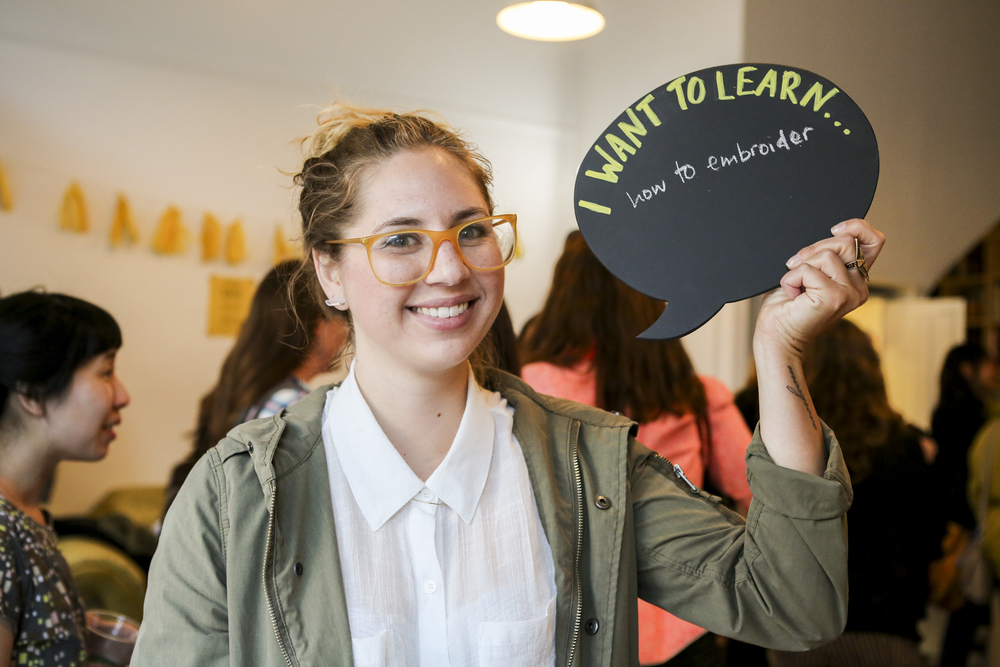 I WANT TO LEARN...
how to embroider